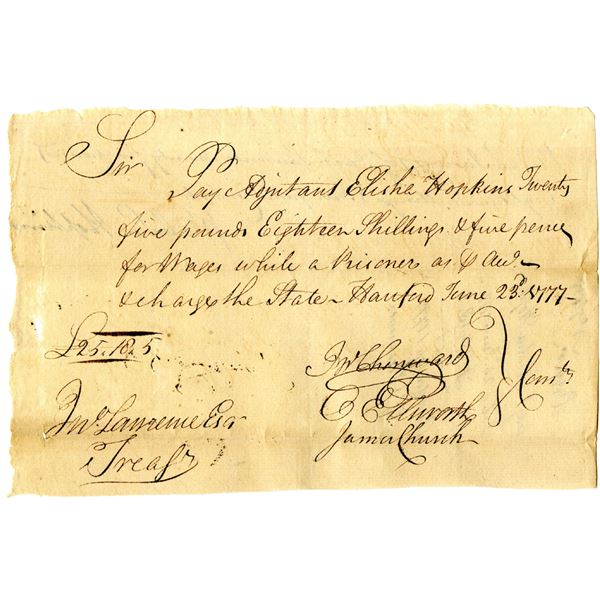 Sir Pay Adjutant Elisha Hopkins Twenty
five pounds Eighteen Shillings & five pence
for Wages while a Prisoner as
& charge the State Hartford June 23d 1777
£25.18.5
Jno Chenward
O Ellsworth
James Church
Comtt
Jno Lawrence Esqr
Treasr